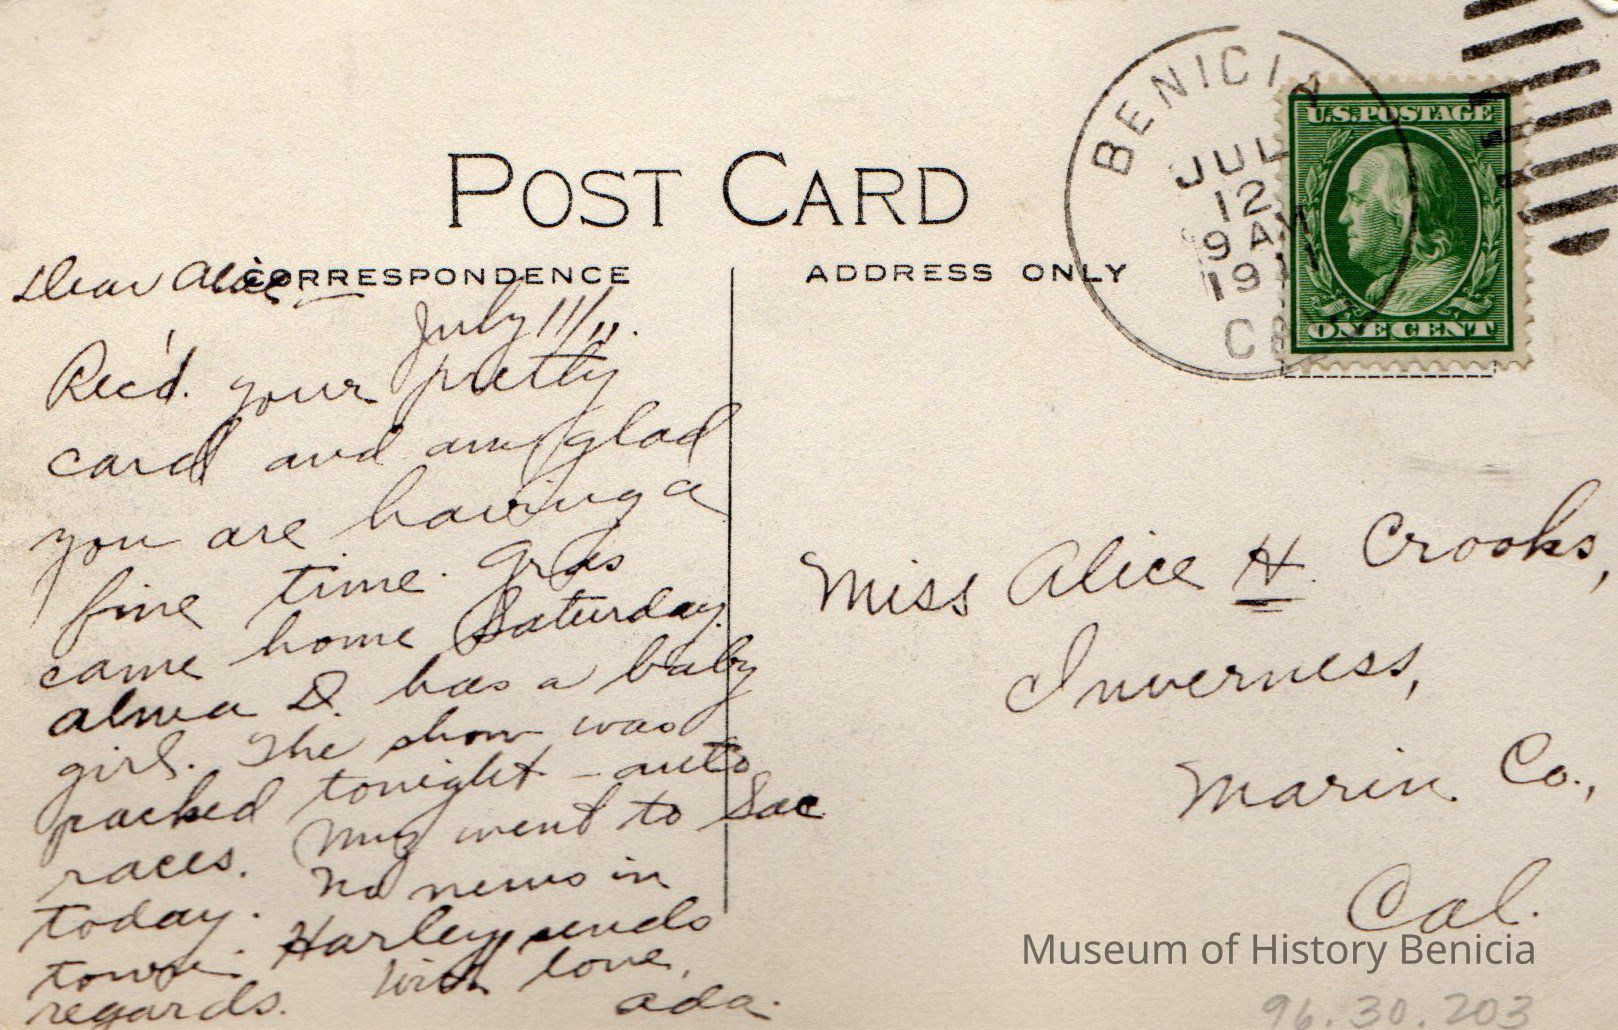 POST CARD
CORRESPONDENCE
ADDRESS ONLY
BENICIA
JUL
12
9 A
191
CA
U.S. POSTAGE
ONE CENT
Dear Alice –
July 11/11.
Rec'd. your pretty
card and am glad
you are having a
fine time.
came home Saturday.
Alma D. has a baby
girl. The show was
packed tonight – auto
races. went to Sac
today. No news in
town. Harley sends
regards. With love,
Ada.
Miss Alice H. Crooks,
Inverness,
Marin Co.,
Cal.
Museum of History Benicia
96.30.203